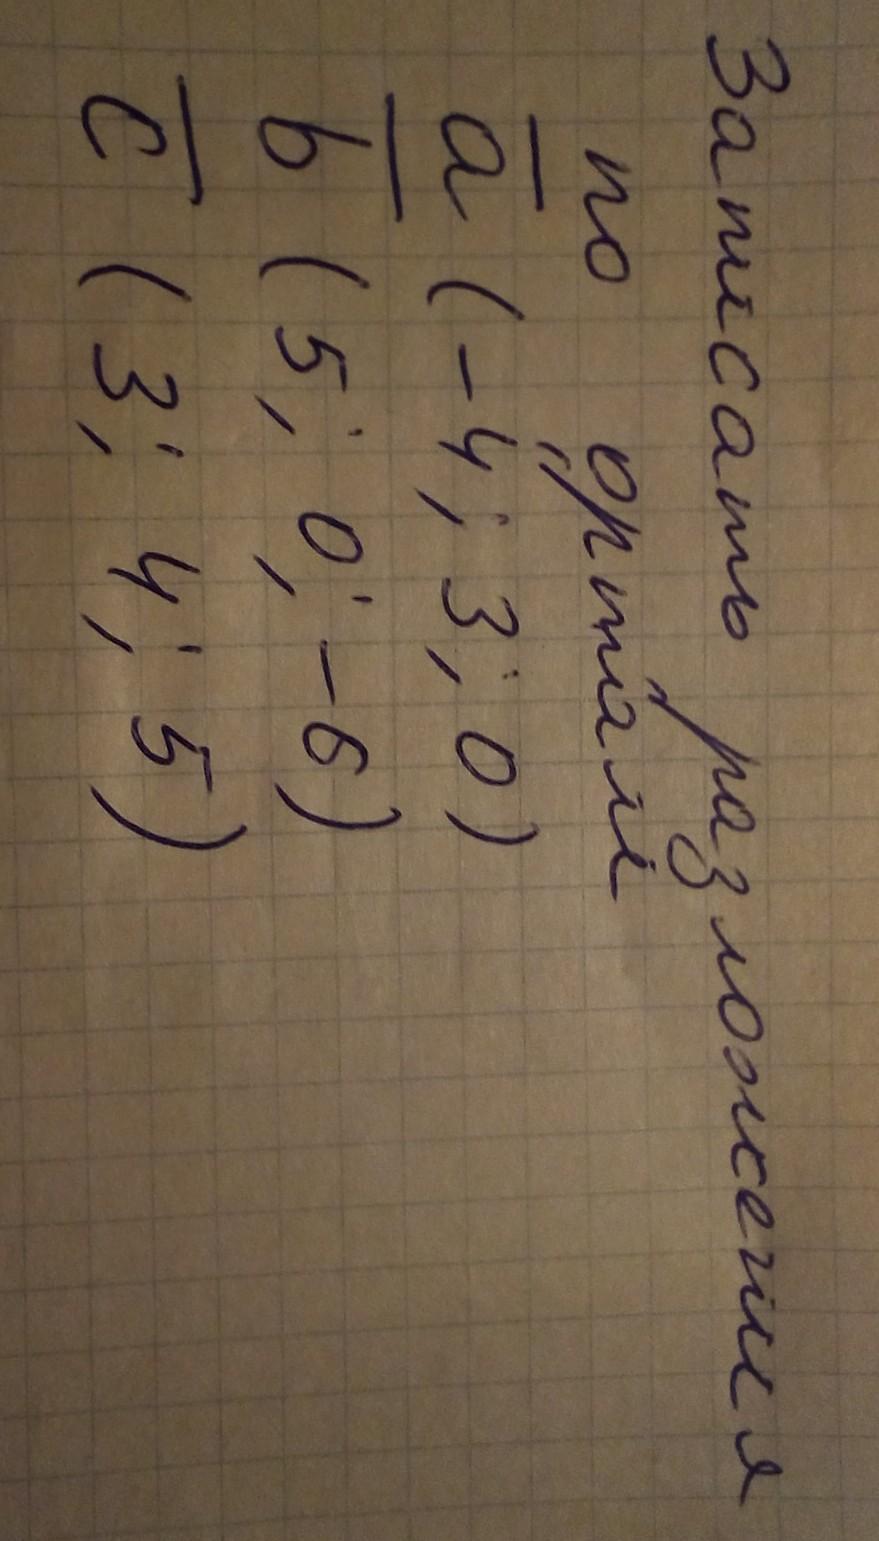 Записать разложения
по ортам
a (-4; 3; 0)
b (5; 0; -6)
c (3; 4; 5)